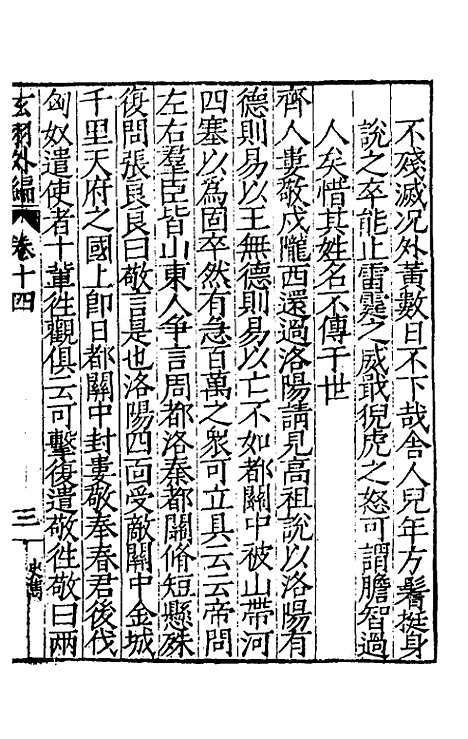 不殘滅况外黃數日不下哉舍人兒年方髫挺身
說之卒能止雷霆之威戢猊虎之怒可謂膽智過
人矣惜其姓名不傳于世
齊人婁敬戍隴西還過洛陽請見高祖說以洛陽有
德則易以王無德則易以亡不如都關中被山帶河
四塞以為固卒然有急百萬之衆可立具云云帝問
左右羣臣皆山東人争言周都洛秦都關脩短懸殊
復問張良良曰敬言是也洛陽四面受敵關中金城
千里天府之國上卽日都關中封婁敬奉春君後伐
匈奴遣使者十輩徃觀俱云可擊復遣敬徃敬曰兩
玄羽外編 卷十四 三 史雋